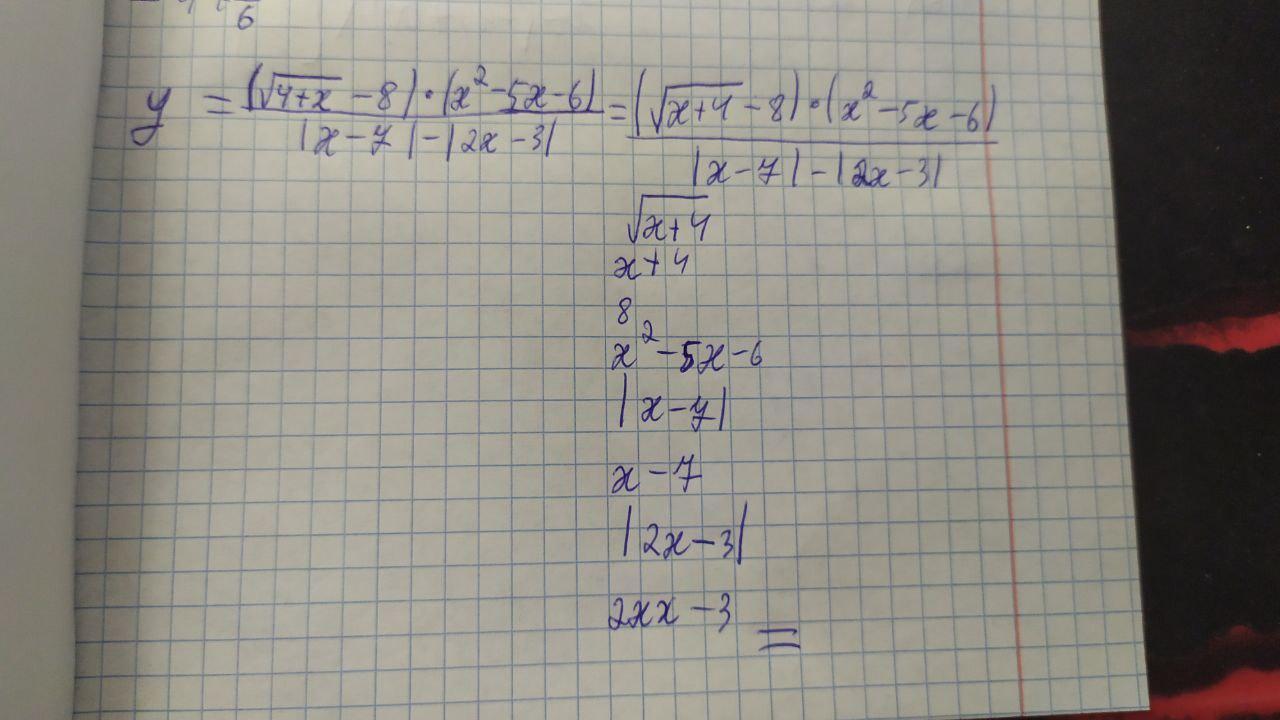 6
y = (√4+x - 8) · (x² - 5x - 6) / |x - 7| - |2x - 3| = (√x+4 - 8) · (x² - 5x - 6) / |x - 7| - |2x - 3|
√x+4
x + 4
8
x² - 5x - 6
|x - 7|
x - 7
|2x - 3|
2xx - 3 =